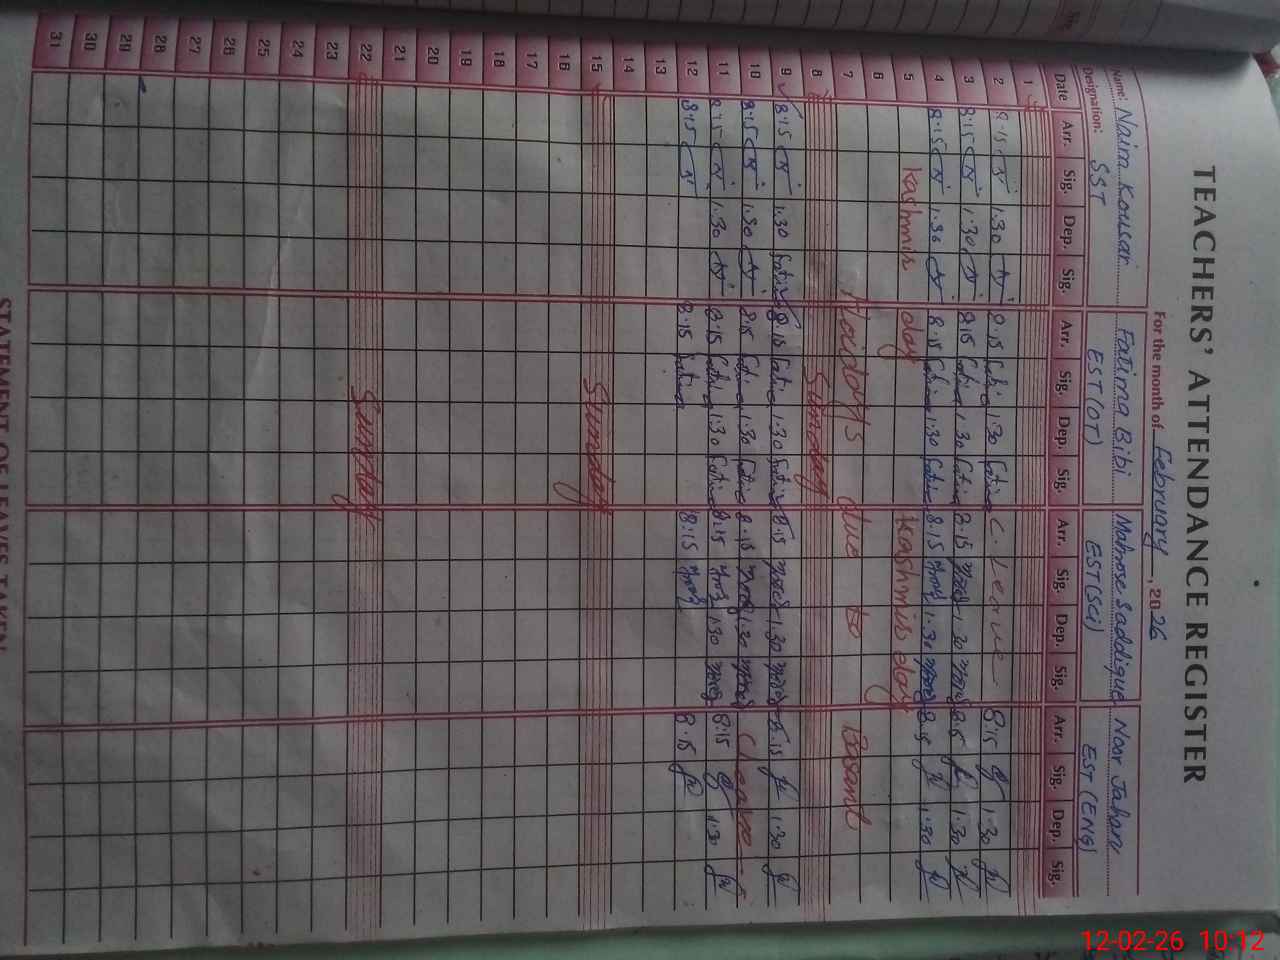 TEACHERS' ATTENDANCE REGISTER
For the month of February, 2026
Name: Naira Kousar Fatima Bibi Mahnose Saddique Noor Jahan
Designation: SST EST(OT) EST(SCI) EST(ENG)
Date Arr. Sig. Dep. Sig. Arr. Sig. Dep. Sig. Arr. Sig. Dep. Sig. Arr. Sig. Dep. Sig.
1
2 8:15 1:30 8:15 Fatima 1:30 Fatima C. Leave 8:15 1:30
3 8:15 1:30 8:15 Fatima 1:30 Fatima 8:15 1:30 8:15 1:30
4 8:15 1:30 8:15 Fatima 1:30 Fatima 8:15 1:30 8:15 1:30
5 Kashmir day Kashmir day
6
7 due to Basant
8 Sunday
9 8:15 1:30 8:15 Fatima 1:30 Fatima 8:15 1:30 8:15 1:30
10 8:15 1:30 8:15 Fatima 1:30 Fatima 8:15 1:30 C leave
11 8:15 1:30 8:15 Fatima 1:30 Fatima 8:15 1:30 8:15 1:30
12 8:15 8:15 Fatima 8:15 8:15
13
14
15 Sunday
16
17
18
19
20
21
22 Sunday
23
24
25
26
27
28
29
30
31
STATEMENT OF LEAVES TAKEN
12-02-26 10:12